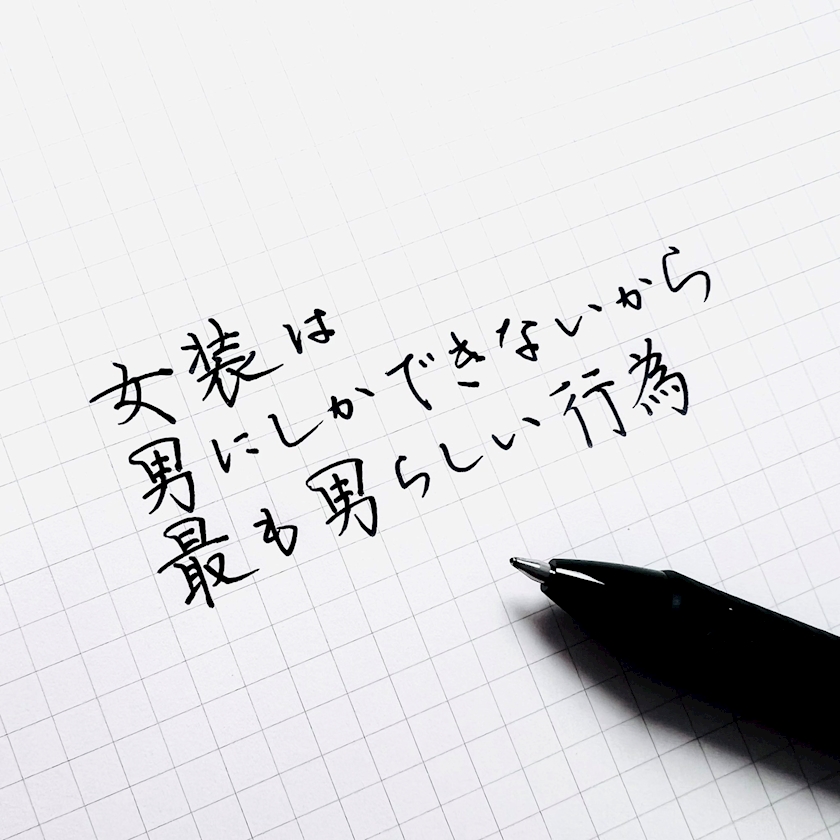 女装は
男にしかできないから
最も男らしい行為